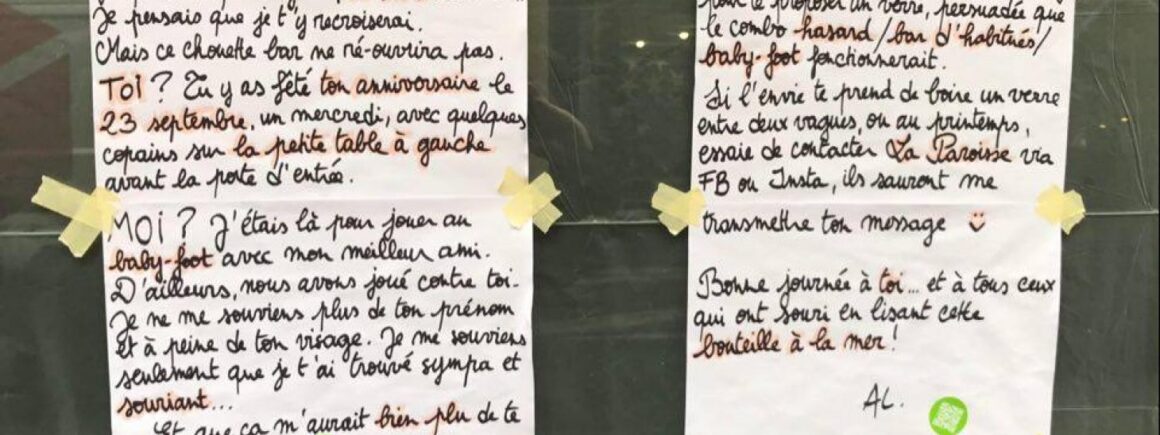 Je pensais que je t'y recroiserai.
Mais ce chouette bar ne ré-ouvrira pas.
TOI ? Tu y as fêté ton anniversaire le
23 septembre, un mercredi, avec quelques
copains sur la petite table à gauche
avant la porte d'entrée.
MOI ? J'étais là pour jouer au
baby-foot avec mon meilleur ami.
D'ailleurs, nous avons joué contre toi.
Je ne me souviens plus de ton prénom
et à peine de ton visage. Je me souviens
seulement que je t'ai trouvé sympa et
souriant...
Et que ça m'aurait bien plu de te
pour te proposer un verre, persuadée que
le combo hasard/bar d'habitués/
baby-foot fonctionnerait.
Si l'envie te prend de boire un verre
entre deux vagues, ou au printemps,
essaie de contacter La Paroisse via
FB ou Insta, ils sauront me
transmettre ton message
Bonne journée à toi... et à tous ceux
qui ont souri en lisant cette
bouteille à la mer !
AL.